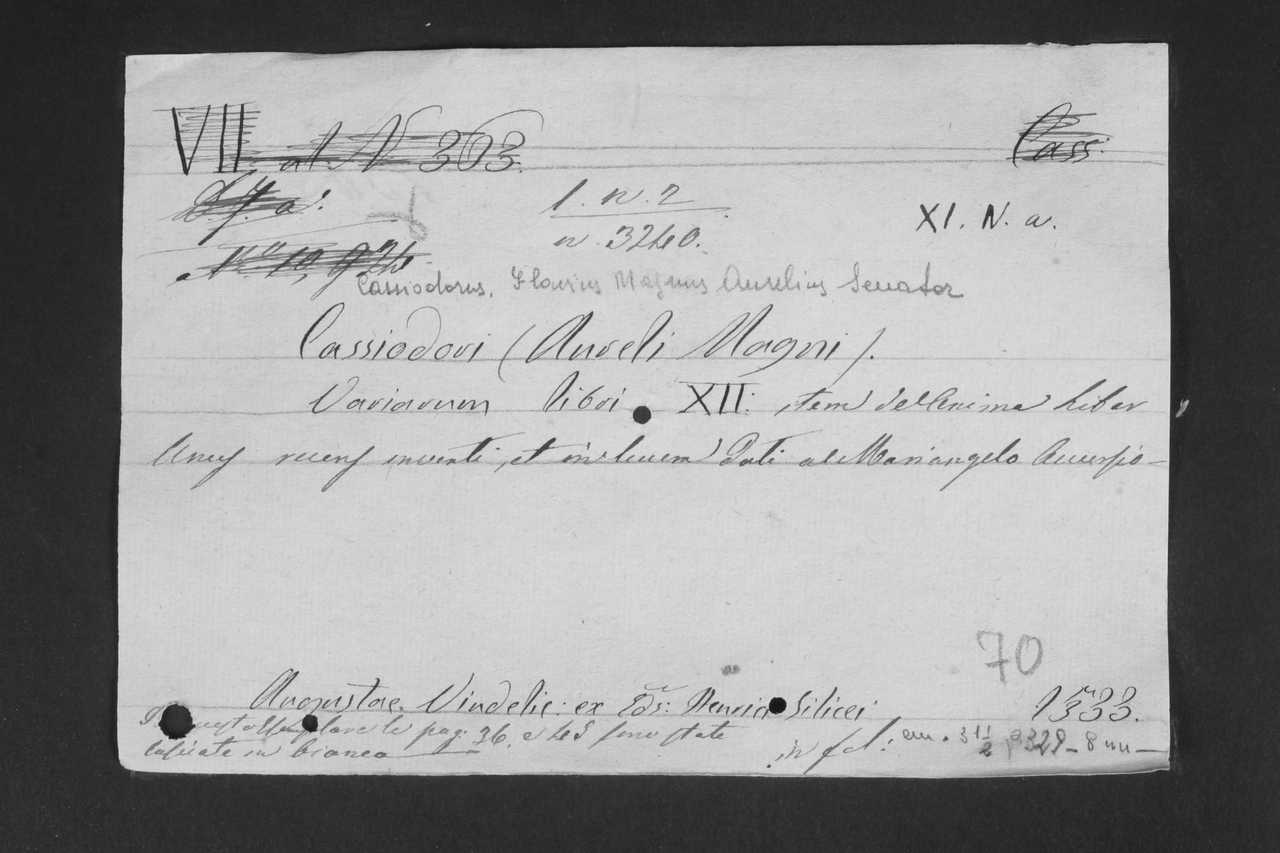 VII at N 363.
Cass.
1. n. 2
n. 3240.
XI. N. a.
Cassiodorus, Flavius Magnus Aurelius Senator
Cassiodori (Aureli Magni).
Variarum libri XII: item de Anima liber
unus recens inventi, et in lucem dati a Mariangelo Accursio
70
Augustae Vindelic: ex Silicei
1533.
pag: 36. e 43 sono state
lasciate in bianco
in fol: cm. 31 1/2 p 328 - 8 nn -